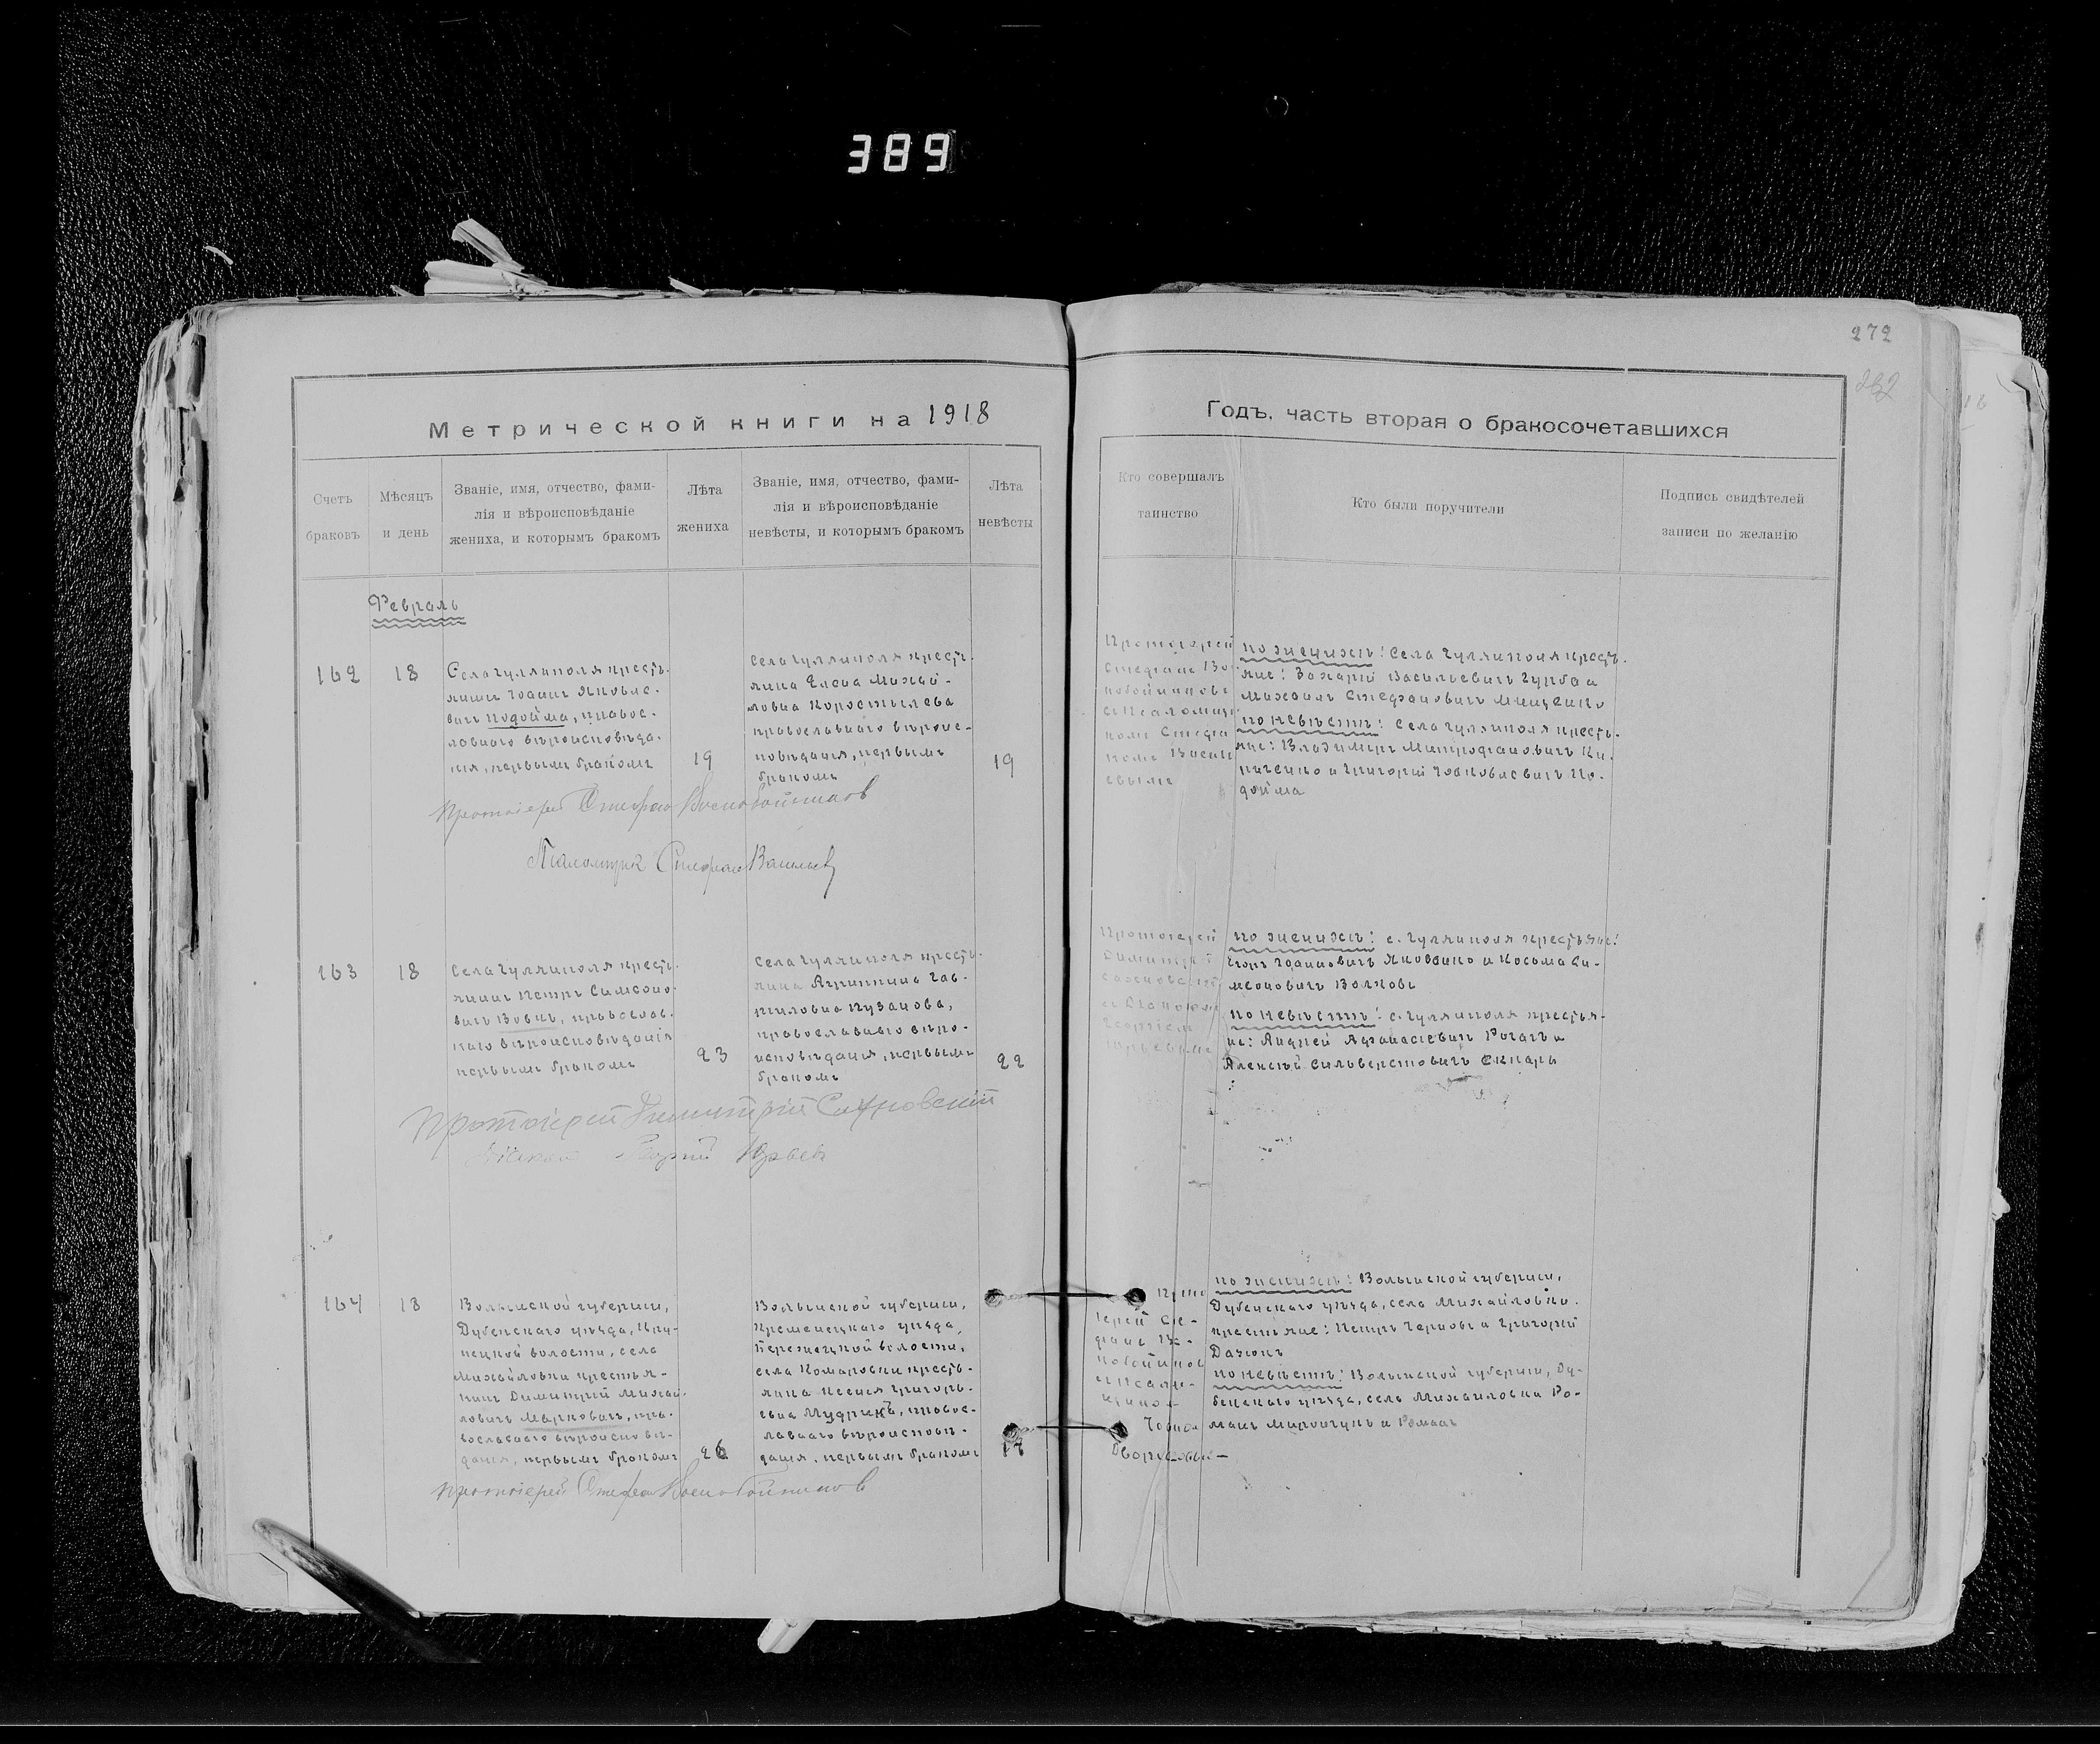 389
272
Метрической книги на 1918
Годъ. часть вторая о бракосочетавшихся
Счетъ
браковъ
Мѣсяцъ
и день
Званіе, имя, отчество, фами-
лія и вѣроисповѣданіе
жениха, и которымъ бракомъ
Лѣта
жениха
Званіе, имя, отчество, фами-
лія и вѣроисповѣданіе
невѣсты, и которымъ бракомъ
Лѣта
невѣсты
Кто совершалъ
таинство
Кто были поручители
Подпись свидѣтелей
записи по желанію
Февраль
162
18
Села Гуляйполя кресть-
янинъ Іоаннъ Яковле-
вичъ Подойма, правос-
лавнаго вѣроисповѣда-
нія, первымъ бракомъ
19
Села Гуляйполя кресть-
янка Елена Михай-
ловна Коростылева
православнаго вѣроис-
повѣданія, первымъ
бракомъ
19
Протоіерей
Стефанъ Во-
нобойниковъ
съ Псаломщи-
комъ Стефа-
номъ Васил-
евымъ
по женихѣ: Села Гуляйполя кресть-
яне: Захарій Васильевичъ Гурба и
Михаилъ Стефановичъ Мищенко
по невѣстѣ: Села Гуляйполя кресть-
яне: Владиміръ Митрофановичъ Ки-
риченко и Григорій Іаковлевичъ По-
дойма
Протоіерей Стефанъ Воснобойниковъ
Псаломщик Стефанъ Васильевъ
163
18
Села Гуляйполя кресть-
янинъ Петръ Симеоно-
вичъ Вовкъ, православ-
наго вѣроисповѣданія
первымъ бракомъ
23
Села Гуляйполя кресть-
янка Агриппина Гав-
риловна Пузанова,
православнаго вѣро-
исповѣданія, первымъ
бракомъ
22
Протоіерей
Димитрій
Сахновскій
съ Діакономъ
Георгіемъ
Юрьевымъ
по женихѣ: с. Гуляйполя крестьяне:
Егоръ Іоанновичъ Яковенко и Косьма Си-
меоновичъ Волковъ
по невѣстѣ: с. Гуляйполя крестья-
не: Андрей Афанасіевичъ Рогачъ и
Алексѣй Сильверстовичъ Скнарь
Протоіерей Димитрій Сахновскій
Діаконъ Георгій Юрьевъ
164
18
Волынской губерніи,
Дубенскаго уѣзда, Кру-
пецкой волости, села
Михайловки крестья-
нинъ Димитрій Михай-
ловичъ Марковичъ, пра-
вославнаго вѣроисповѣ-
данія, первымъ бракомъ
26
Волынской губерніи,
Кременецкаго уѣзда,
Бережецкой волости,
села Комаровки кресть-
янка Ксенія Григорь-
евна Мудрикъ, правос-
лавнаго вѣроисповѣ-
данія, первымъ бракомъ
17
по женихѣ: Волынской губерніи,
Дубенскаго уѣзда, села Михайловки
крестьяне: Петръ Черновъ и Григорій
Дачюкъ
по невѣстѣ: Волынской губерніи, Ду-
бенскаго уѣзда, села Михаиловки Ро-
манъ и Романъ
Протоіерей Стефанъ Воснобойниковъ